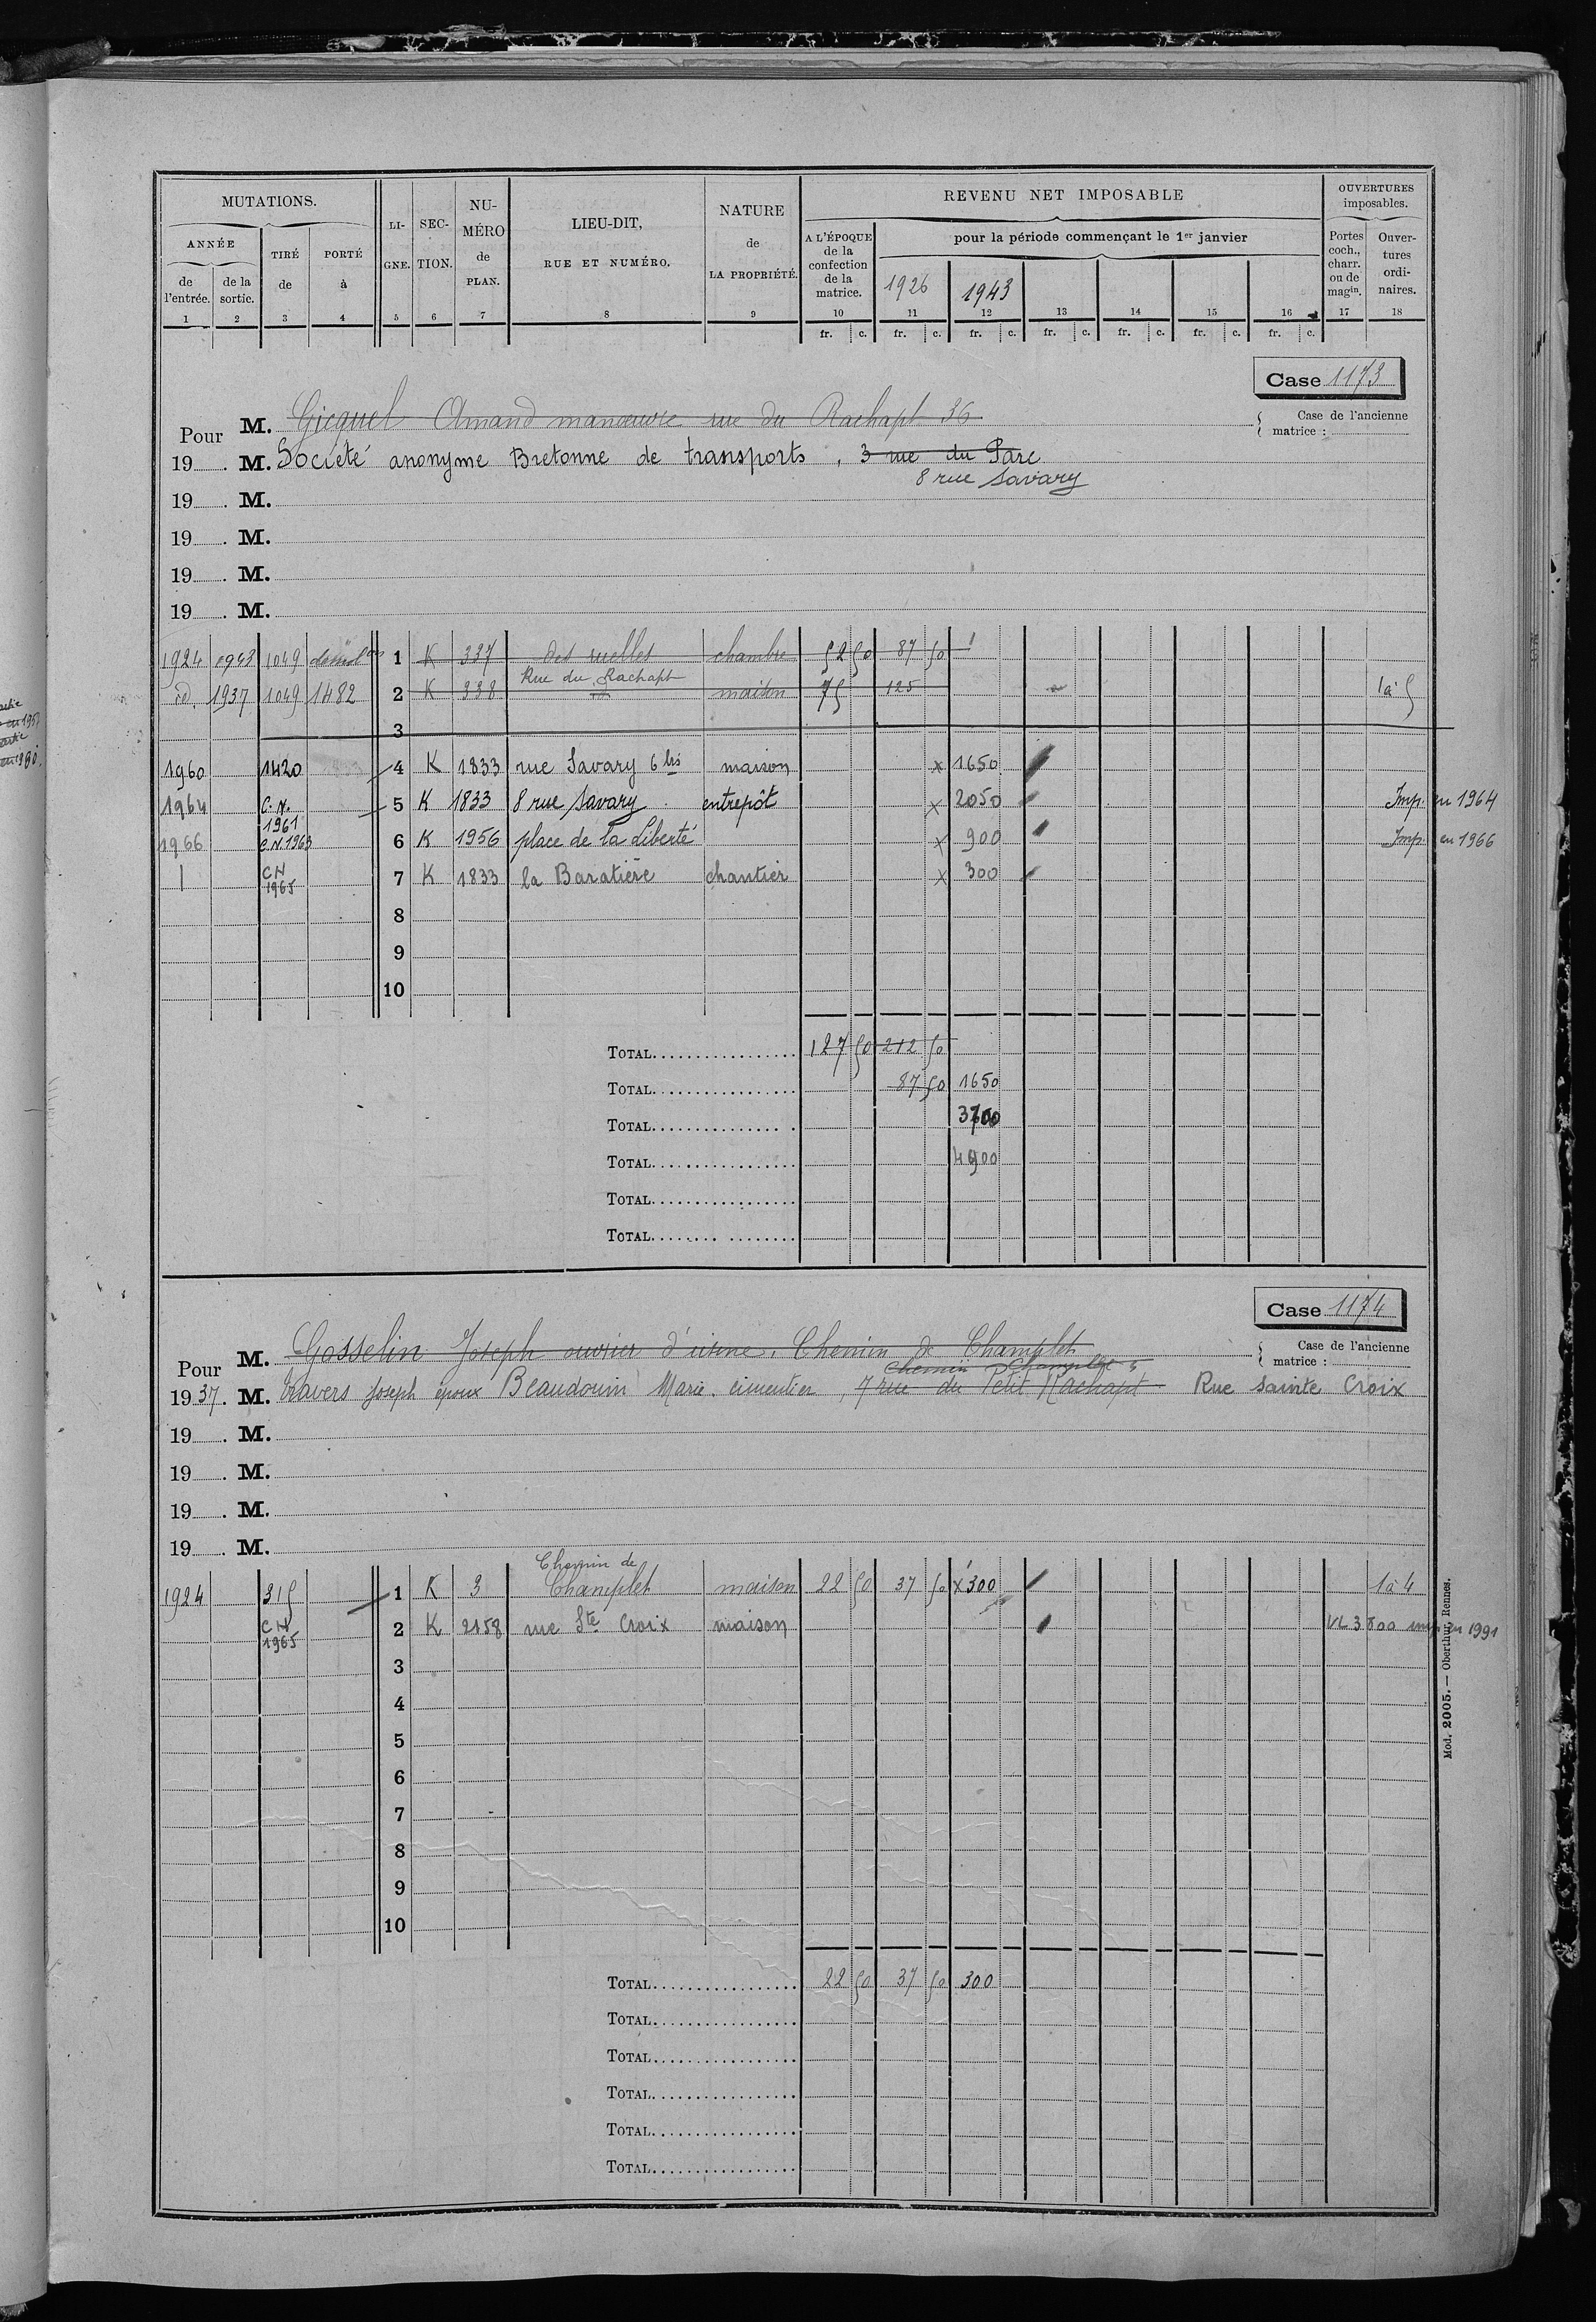 MUTATIONS. LI-GNE. SEC-TION. NU-MÉRO de PLAN. LIEU-DIT, RUE ET NUMÉRO. NATURE de LA PROPRIÉTÉ. REVENU NET IMPOSABLE OUVERTURES imposables.
ANNÉE TIRÉ de PORTÉ à A L'ÉPOQUE de la confection de la matrice. pour la période commençant le 1er janvier Portes coch., charr. ou de magin. Ouver-tures ordi-naires.
de l'entrée. de la sortie. 1926 1943
1 2 3 4 5 6 7 8 9 10 11 12 13 14 15 16 17 18
fr. c. fr. c. fr. c. fr. c. fr. c. fr. c. fr. c.
Case 1173
Pour M. Gicquel Amand manœuvre rue du Rachapt 36 Case de l'ancienne matrice :
19 . M. Société anonyme Bretonne de transports, 3 rue du Parc
8 rue Savary
19 . M.
19 . M.
19 . M.
19 . M.
1924 1943 1049 démolon 1 K 337 des ruelles chambre 52 50 87 50
Rue du Rachapt
id. 1937 1049 1482 2 K 338 maison 75 125 1 à 5
3
1960 1420 4 K 1833 rue Savary 6 bis maison x 1650
1964 C.N. 1961 5 K 1833 8 rue Savary entrepôt x 2050 Imp. en 1964
1966 C.N. 1963 6 K 1956 place de la Liberté x 900 Imp. en 1966
CN 1965 7 K 1833 la Baratière chantier x 300
8
9
10
TOTAL 127 50 212 50
TOTAL 87 50 1650
TOTAL 3700
TOTAL 4900
TOTAL
TOTAL
Case 1174
Pour M. Gosselin Joseph ouvrier d'usine. Chemin de Champlet Case de l'ancienne matrice :
Chemin Champlet 5
1937. M. Travers Joseph époux Beaudouin Marie. cimentier, 7 rue du Petit Rachapt Rue Sainte Croix
19 . M.
19 . M.
19 . M.
19 . M.
Chemin de
1924 315 1 K 3 Champlet maison 22 50 37 50 x 300 1 à 4
CN 1965 2 K 2158 rue Ste Croix maison VL 3800 imp en 1991
3
4
5
6
7
8
9
10
TOTAL 22 50 37 50 300
TOTAL
TOTAL
TOTAL
TOTAL
TOTAL
Mod. 2005. — Oberthur, Rennes.